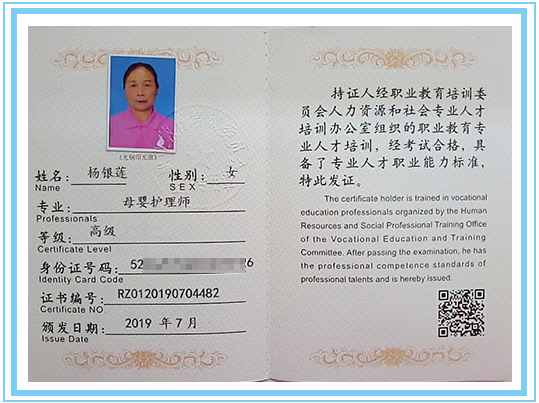 (无钢印无效)
姓名: 杨银莲 性别: 女
Name SEX
专业: 母婴护理师
Professionals
等级: 高级
Certificate Level
身份证号码: 52 6
Identity Card Code
证书编号: RZ0120190704482
Certificate NO
颁发日期: 2019 年 7 月
Issue Date
持证人经职业教育培训委
员会人力资源和社会专业人才
培训办公室组织的职业教育专
业人才培训,经考试合格,具
备了专业人才职业能力标准,
特此发证。
The certificate holder is trained in vocational
education professionals organized by the Human
Resources and Social Professional Training Office
of the Vocational Education and Training
Committee. After passing the examination, he has
the professional competence standards of
professional talents and is hereby issued.